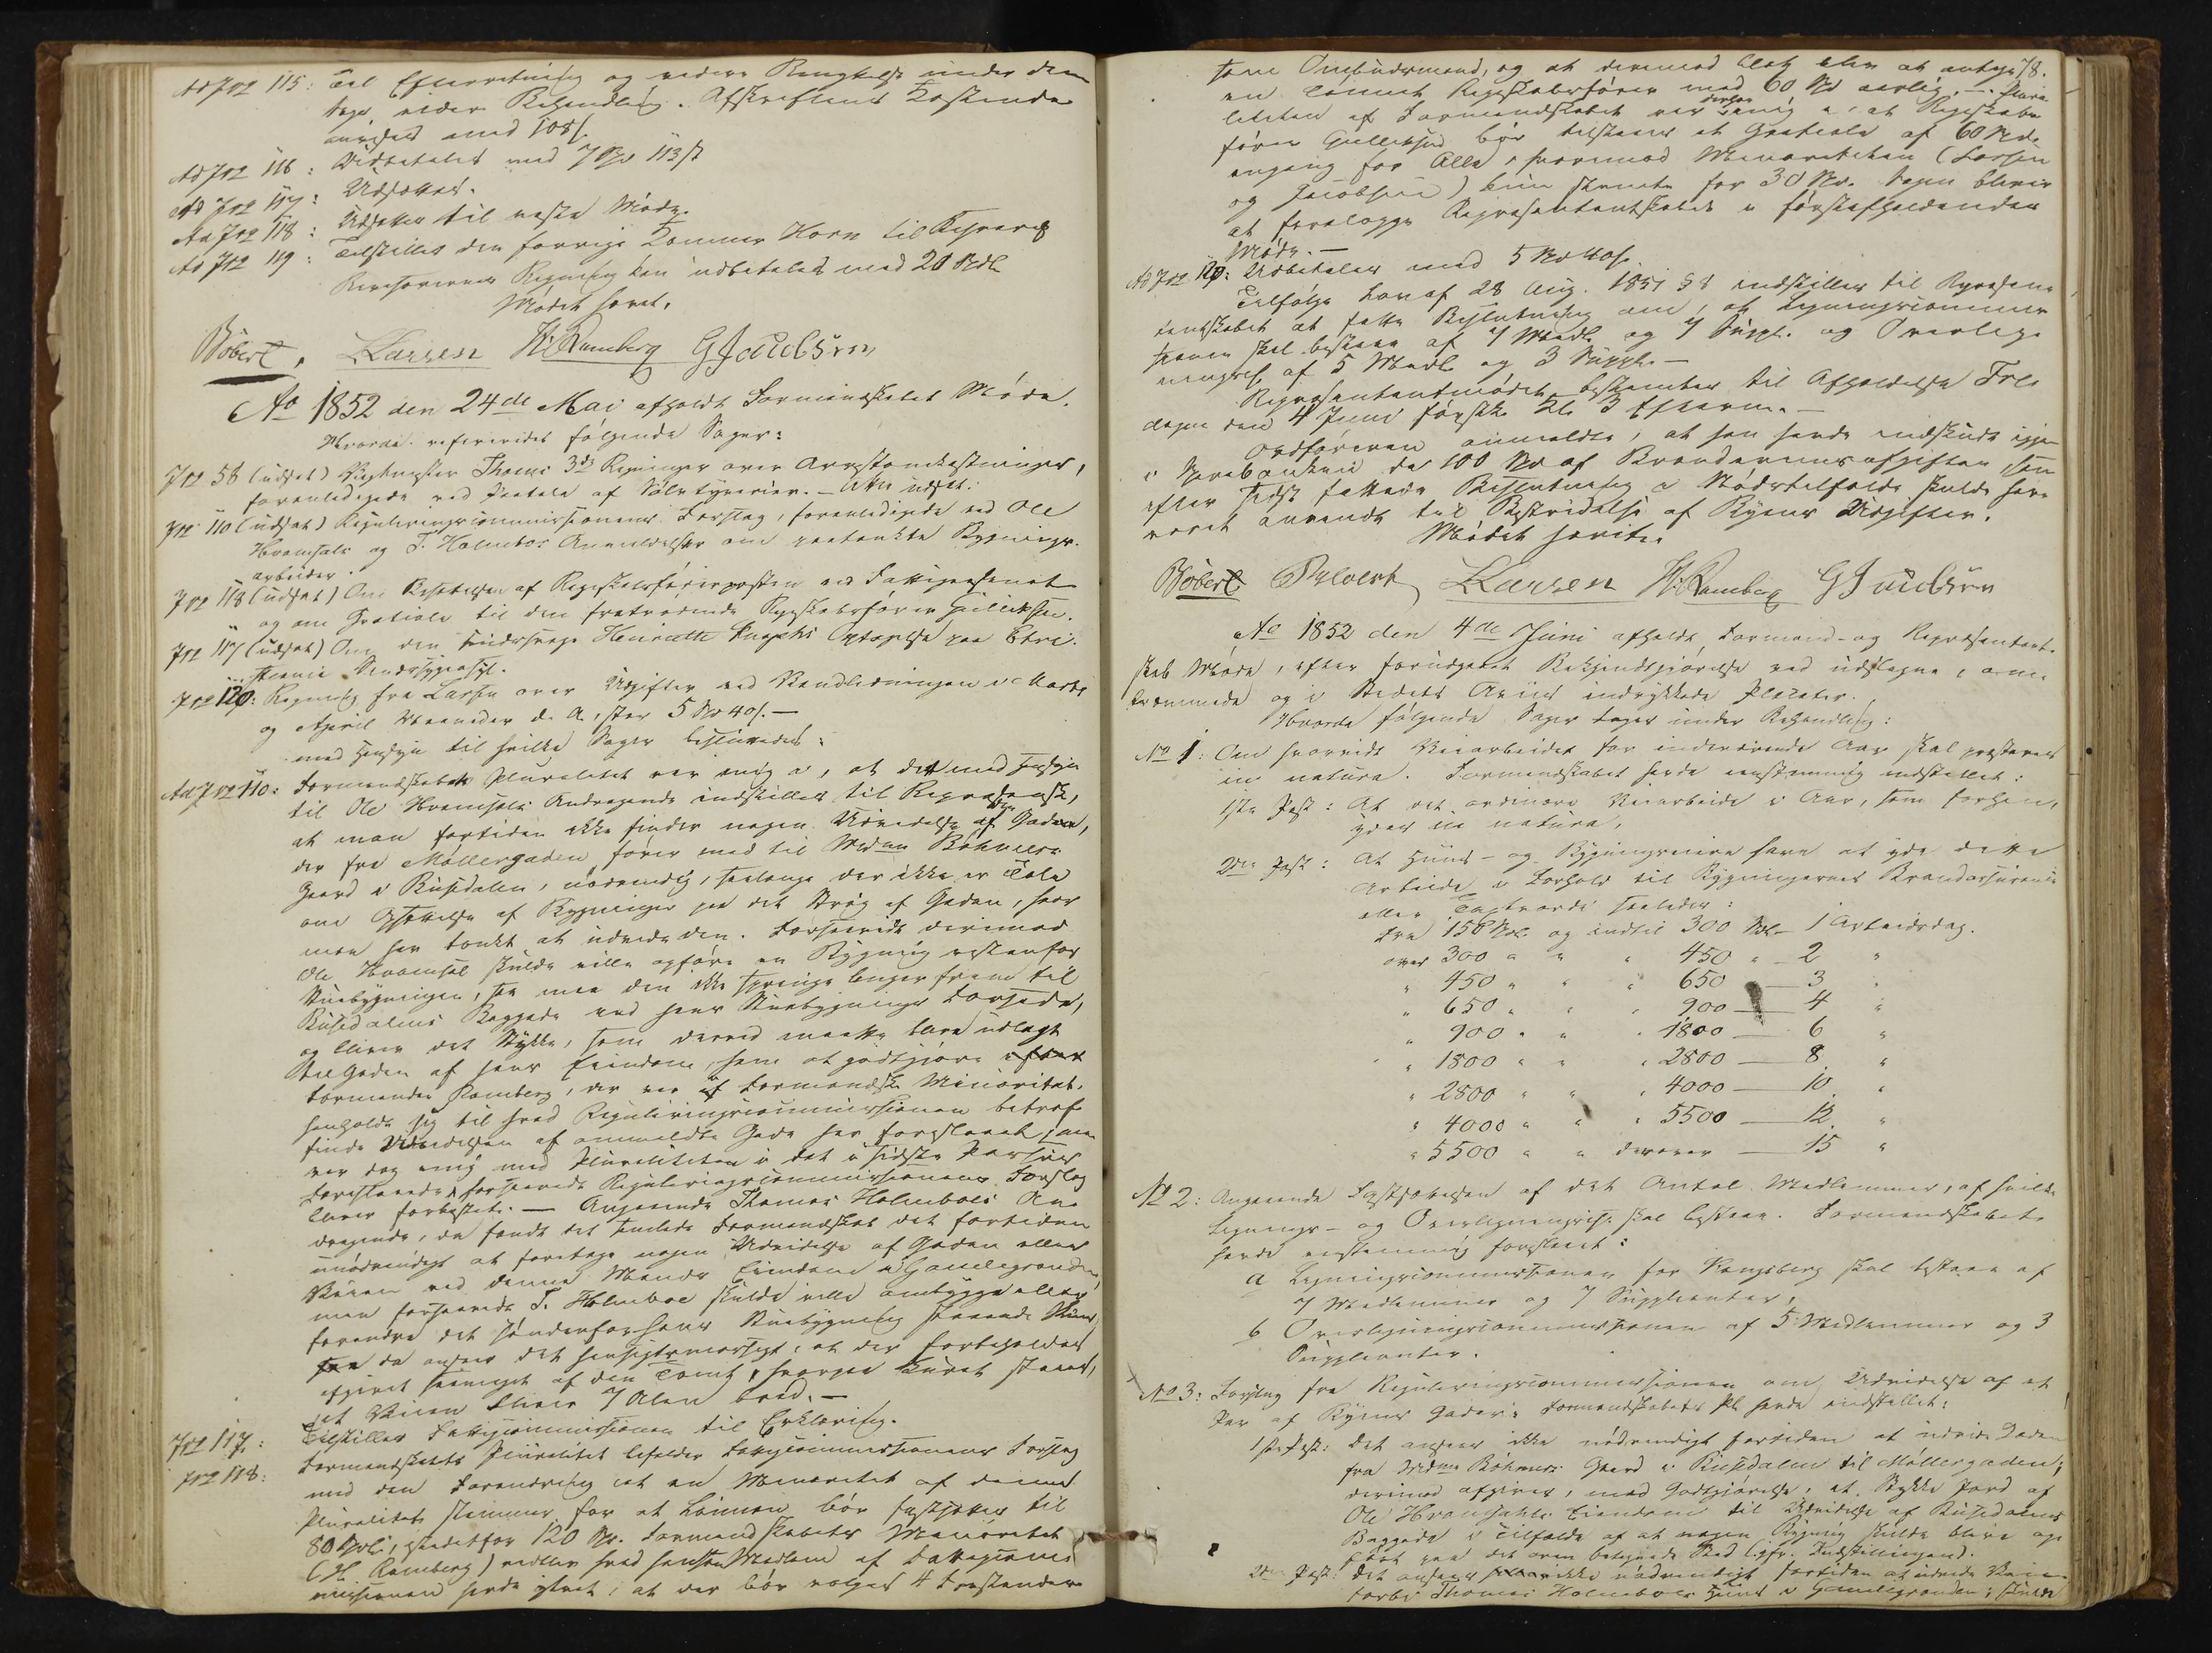 Ad Jr№ 115: Til Efterretning og videre
tages videre Behandling. Afskriftens Kostende
med 108 s.
Ad Jr№ 116: Udbetales med 7 Spd 113 s
Ad Jr№ 117: Udsættes.
Ad Jr№ 118: Udsættes til næste Møde.
Ad Jr№ 119: Tilstilles den forrige
Revisorernes Regning kan udbetales med 20 Spdl
Mødet hævet.
Böbert. Larsen H. Ramberg G Jacobsen
Ao 1852 den 24de Mai afholdt Formandskabet Møde.
Hvorda refereredes følgende Sager:
Jr№ 58 (udsat) Thomes 3de Regninger over Arrestomkostninger,
foranledigede ved af Sølvtyverier. – Atter udsat.
Jr№ 110 (udsat) Reguleringscommissionens Forslag, foranledigede ved Ole
Hvamsals og T. Holmboes Anmeldelser om paatænkte Bygnings-
arbeider.
Jr№ 118 (udsat) Om Besettelsen af Regnskabsførerposten ved Fattigvæsenet
og om Gratiale til den fratrædende Regnskabsfører Gulliksen.
Jr№ 117 (udsat) Om den sindssvage Henriette Optagelse paa Chri-
stiania Sindssygeasyl.
Jr№ 120: Regning fra Larsen over Udgifter ved Vandledningen i Marts
og April Maaneder d. A., stor 5 Spd 40 s. –
med Hensyn til hvilke Sager besluttedes:
Ad Jr№ 110: Formandskabets Pluralitet var enig i, at det med Hensyn
til Ole Hvamsals Andragende indstilles til Repræsentsk.,
at man fortiden ikke finder nogen Udvidelse af Gaden,
der fra Møllergaden fører ned til Mdme Böhmers
Gaard i Busedalen, nødvendig, saalænge der ikke er Tale
om Opførelse af Bygninger paa det Strøg af Gaden, hvor
man har tænkt at udvide den. Forsaavidt derimod
Ole Hvamsal skulde ville opføre en Bygning vestenfor
Stuebygningen, saa maa den ikke springe længer frem til
Busedalens Baggade end hans Stuebygnings Forside,
og bliver det Stykke, som derved maatte blive udlagt
til Gaden af hans Eiendom, ham at godtgjøre efter
Formanden Ramberg, der var af Formandsk. Minoritet,
henholdt sig til hvad Reguleringscommissionen betræf-
fende Udvidelsen af anmeldte Gade har foreslaaet, men
var dog enig med Pluraliteten i det i sidste
Foreslaaede, forsaavidt Reguleringscommissionens Forslag
bliver forkastet. – Angaaende Thomas Holmboes An-
dragende, da fandt det samlede Formandskab det fortiden
unødvendigt at foretage nogen Udvidelse af Gaden eller
Veien ved denne Mands Eiendom i Gamlegrænden,
men forsaavidt T. Holmboe skulde ville ombygge eller
forandre det søndenfor hans Stuebygning staaende Skuur,
da ansees det hensigtsmæssigt, at der forbeholdes
afgivet saameget af den Tomt, hvorpaa Skuret staaer,
at Veien bliver 7 Alen bred. –
Jr№ 117: Tilstilles Fattigcommissionen til Erklæring.
Jr№ 118: Formandskabets Pluralitet bifalder Fattigcommissionens Forslag
med den Forandring at en Minoritet af denne
Pluralitet stemmer for at Lønnen bør fastsættes til
80 Spdl, istedetfor 120 Sp. Formandskabets Minoritet
(H. Ramberg) vedlog hvad han som Medlem af Fattigcom-
missionen havde ytret, at der bør vælges 4 Forstandere
som Ombudsmænd, og at derimod blot blev at antage 78.
en lønnet Regnskabsfører med 60 Spd aarlig. – Plura-
liteten af Formandskabet var derhos enig i, at Regnskabs-
fører Gulliksen bør tilstaaes et Gratiale af 60 Spd.
engang for Alle, hvorimod Minoriteten (Larsen
og Jacobsen) kun stemte for 30 Spd. Sagen bliver
at forelægge Repræsentantskabet i førstafholdendes
Møde. –
Ad Jr№ 120: Udbetales med 5 Spd 40 s.
Tilfølge Lov af 28 Aug. 1851 § 1 indstilles til Repræsen-
tantskabet at fatte Beslutning om, at Ligningscommis-
sionen skal bestaae af 7 Medl. og 7 Suppl. og Overlig-
af 5 Medl og 3 Suppl. –
Repræsentantmødet bestemtes til Afholdelse Fre-
dagen den 4 Juni førstk. Kl. 3 Efterm. –
Ordføreren anmeldte, at han havde indskudt igjen
i Sparebanken de 100 Spd af Brændeviinsafgiften som
efter sidst fattede Beslutning i Nødstilfælde skulde have
været anvendt til Bestridelse af Byens Udgifter.
Mødet hævet.
Böbert Larsen H. Ramberg G Jacobsen
Ao 1852 den 4de Juni afholdt Formand- og Repræsentant-
skab Møde, efter forudgaaet Bekjendtgjørelse ved udslagne, om-
trommede og i Stedets Aviis indrykkede Placater.
Hvorda følgende Sager toges under Behandling:
№ 1: Om hvorvidt Veiarbeidet for indeværende Aar skal præsteres
in natura. Formandskabet havde eenstemmig indstillet:
1ste Post: At det ordinære Veiarbeide i Aar, som forhen,
ydes in natura.
2den Post: At Huus- og Bygningseiere have at yde dette
Arbeide i Forhold til Bygningernes Brandassurance
eller Taxtværdi saaledes:
Fra 150 Spd. og indtil 300 Spd – 1 Arbeidsdag.
over 300 " " " 450 " – 2 "
" 450 " " " 650 – 3 "
" 650 " " " 900 – 4 "
" 900 " " " 1800 – 6 "
" 1800 " " " 2800 – 8 "
" 2800 " " " 4000 – 10 "
" 4000 " " " 5500 – 12 "
" 5500 " " derover – 15 "
№ 2: Angaaende Fastsættelsen af det Antal Medlemmer, af hvilke
Lignings- og Overligningsc. skal bestaae. Formandskabet
havde eenstemmig foreslaaet:
a Ligningscommissionen for Kongsberg skal bestaae af
7 Medlemmer og 7 Suppleanter,
b Overligningscommissionen af 5 Medlemmer og 3
Suppleanter.
№ 3: Forslag fra Reguleringscommissionen om Udvidelse af et
Par af Byens Gader. Formandskabets Pl. havde indstillet:
1ste Post: Det ansees ikke nødvendigt fortiden at udvide Gaden
fra Mdme Böhmers Gaard i Busedalen til Møllergaden;
derimod afgives, mod Godtgjørelse, et Stykke Jord af
Ole Hvamsahls Eiendom til Udvidelse af Busedalens
Baggade i Tilfælde af at nogen Bygning skulde blive op-
ført paa det oven betegnede Sted (cfr. Indstillingen).
2den Post: Det ansees ikke nødvendigt fortiden at udvide Veien
forbi Thomas Holmboes Huus i Gamlegrænden; skulde